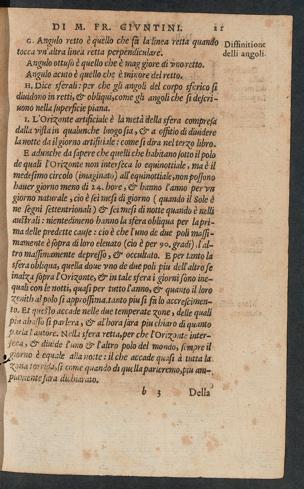 DI M. FR. GIVNTINI. 11
G. Angulo retto è quello che fa la linea retta quando
tocca vn'altra linea retta perpendiculare.
Diffinitione
delli angoli.
Angulo ottuso è quello che è maggiore di vno retto.
Angulo acuto è quello che è minore del retto.
H. Dice sferali: per che gli angoli del corpo sferico si
diuidono in retti, & obliqui, come gli angoli che si descri-
uono nella superficie piana.
I. L'Orizonte artificiale è la metà della sfera compresa
dalla vista in qualunche luogo sia, & a offitio di diuidere
la notte da il giorno artifitiale: come si dira nel terzo libro.
E adunche da sapere che quelli che habitano sotto il polo
de quali l'Orizonte non interseca lo equinottiale, ma è il
medesimo circolo (imaginato) all'equinottiale, non possono
hauer giorno meno di 24. hore, & hanno l'anno per vn
giorno naturale, cio è sei mesi di giorno (quando il Sole è
ne segni settentrionali) & sei mesi di notte quando è nelli
australi: nientedimeno hanno la sfera obliqua per la pri-
ma delle predette cause: cio è che l'uno de due poli massi-
mamente è sopra di loro eleuato (cio è per 90. gradi) l'al-
tro massimamente depresso, & occultato. E per tanto la
sfera obliqua, quella doue vno de duoi poli piu dell'altro se
inalza sopra l'Orizonte, & in tale sfera i giorni sono ine-
quali con le notti, quasi per tutto l'anno, & quanto il loro
zenith al polo si approssima, tanto piu si fa lo accrescimen-
to. Et questo accade nelle due temperate zone, delle quali
piu abasso si parlera, & al hora sara piu chiaro di quanto
parla l'autore. Nella sfera retta, per che l'Orizonte inter-
seca, & diuide l'uno & l'altro polo del mondo, sempre il
giorno è equale alla notte: il che accade quasi à tutta la
zona torrida, si come quando di quella parleremo, piu am-
piamente sara dichiarato.
b 3 Della